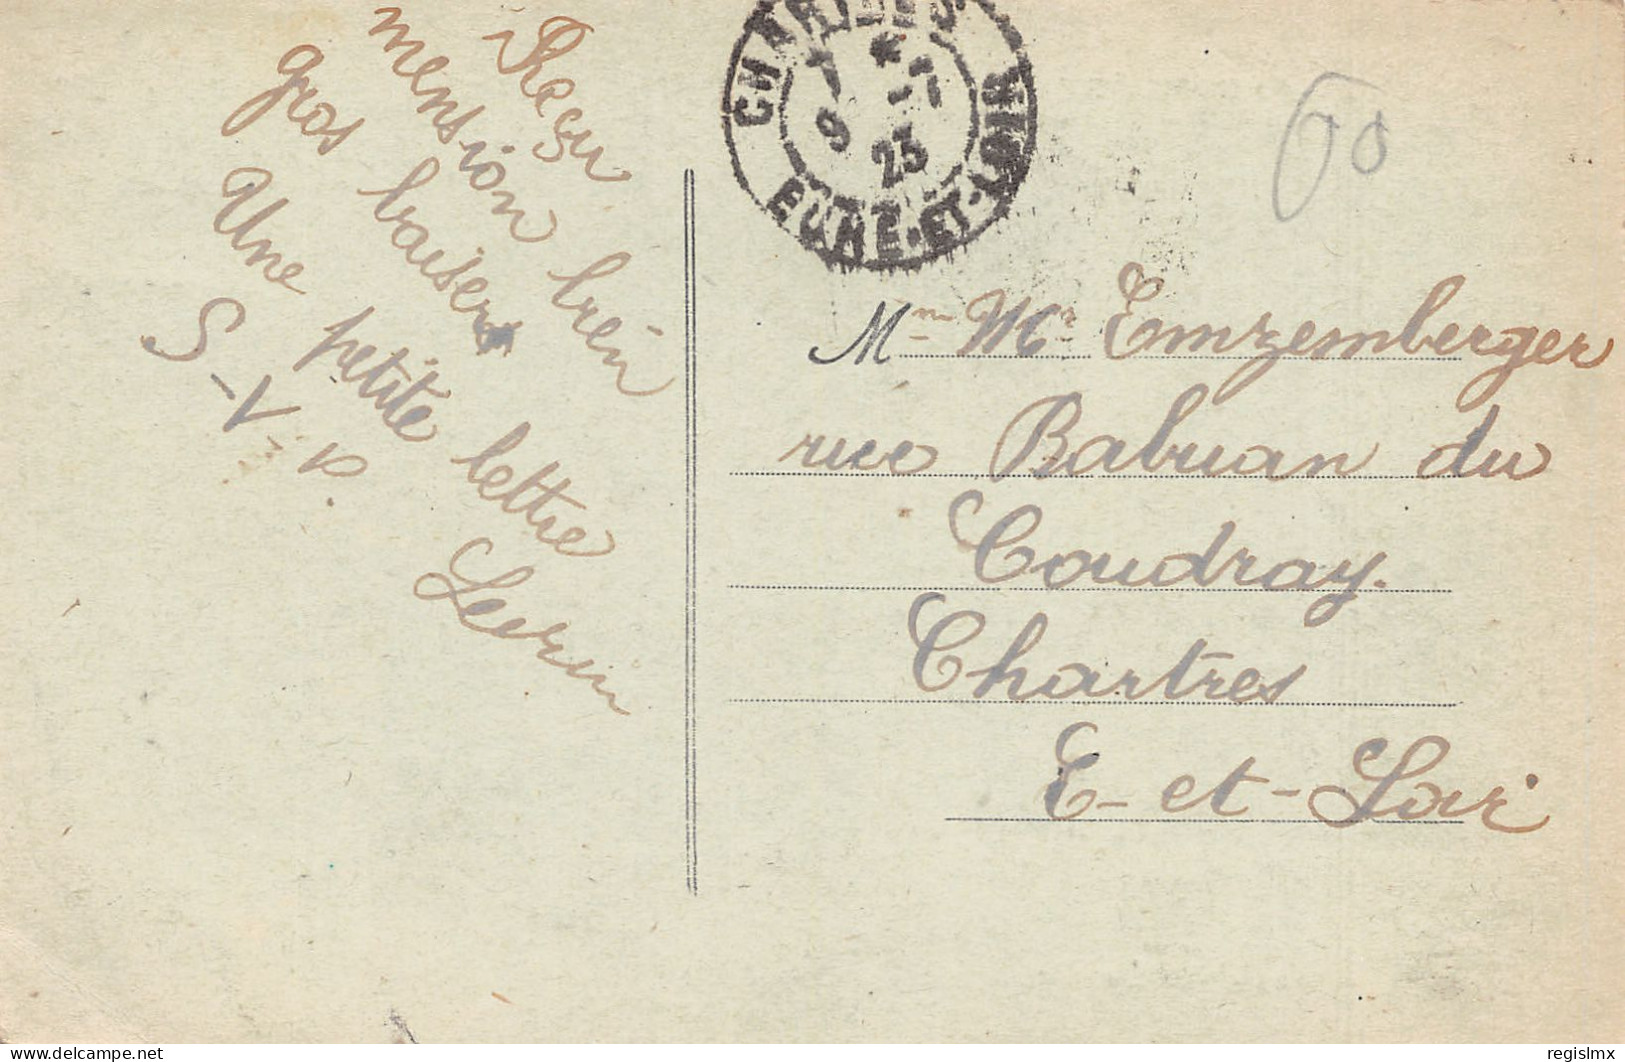 Reçu
mension bien
gros baisers
Une petite lettre
S-V-P.
CHARTRES
7 * -7
9 23
EURE-ET-LOIR
60
Mme Mr Emzemberger
rue Babuan du
Coudray.
Chartres
E-et-Loir
delcampe.net
regislmx